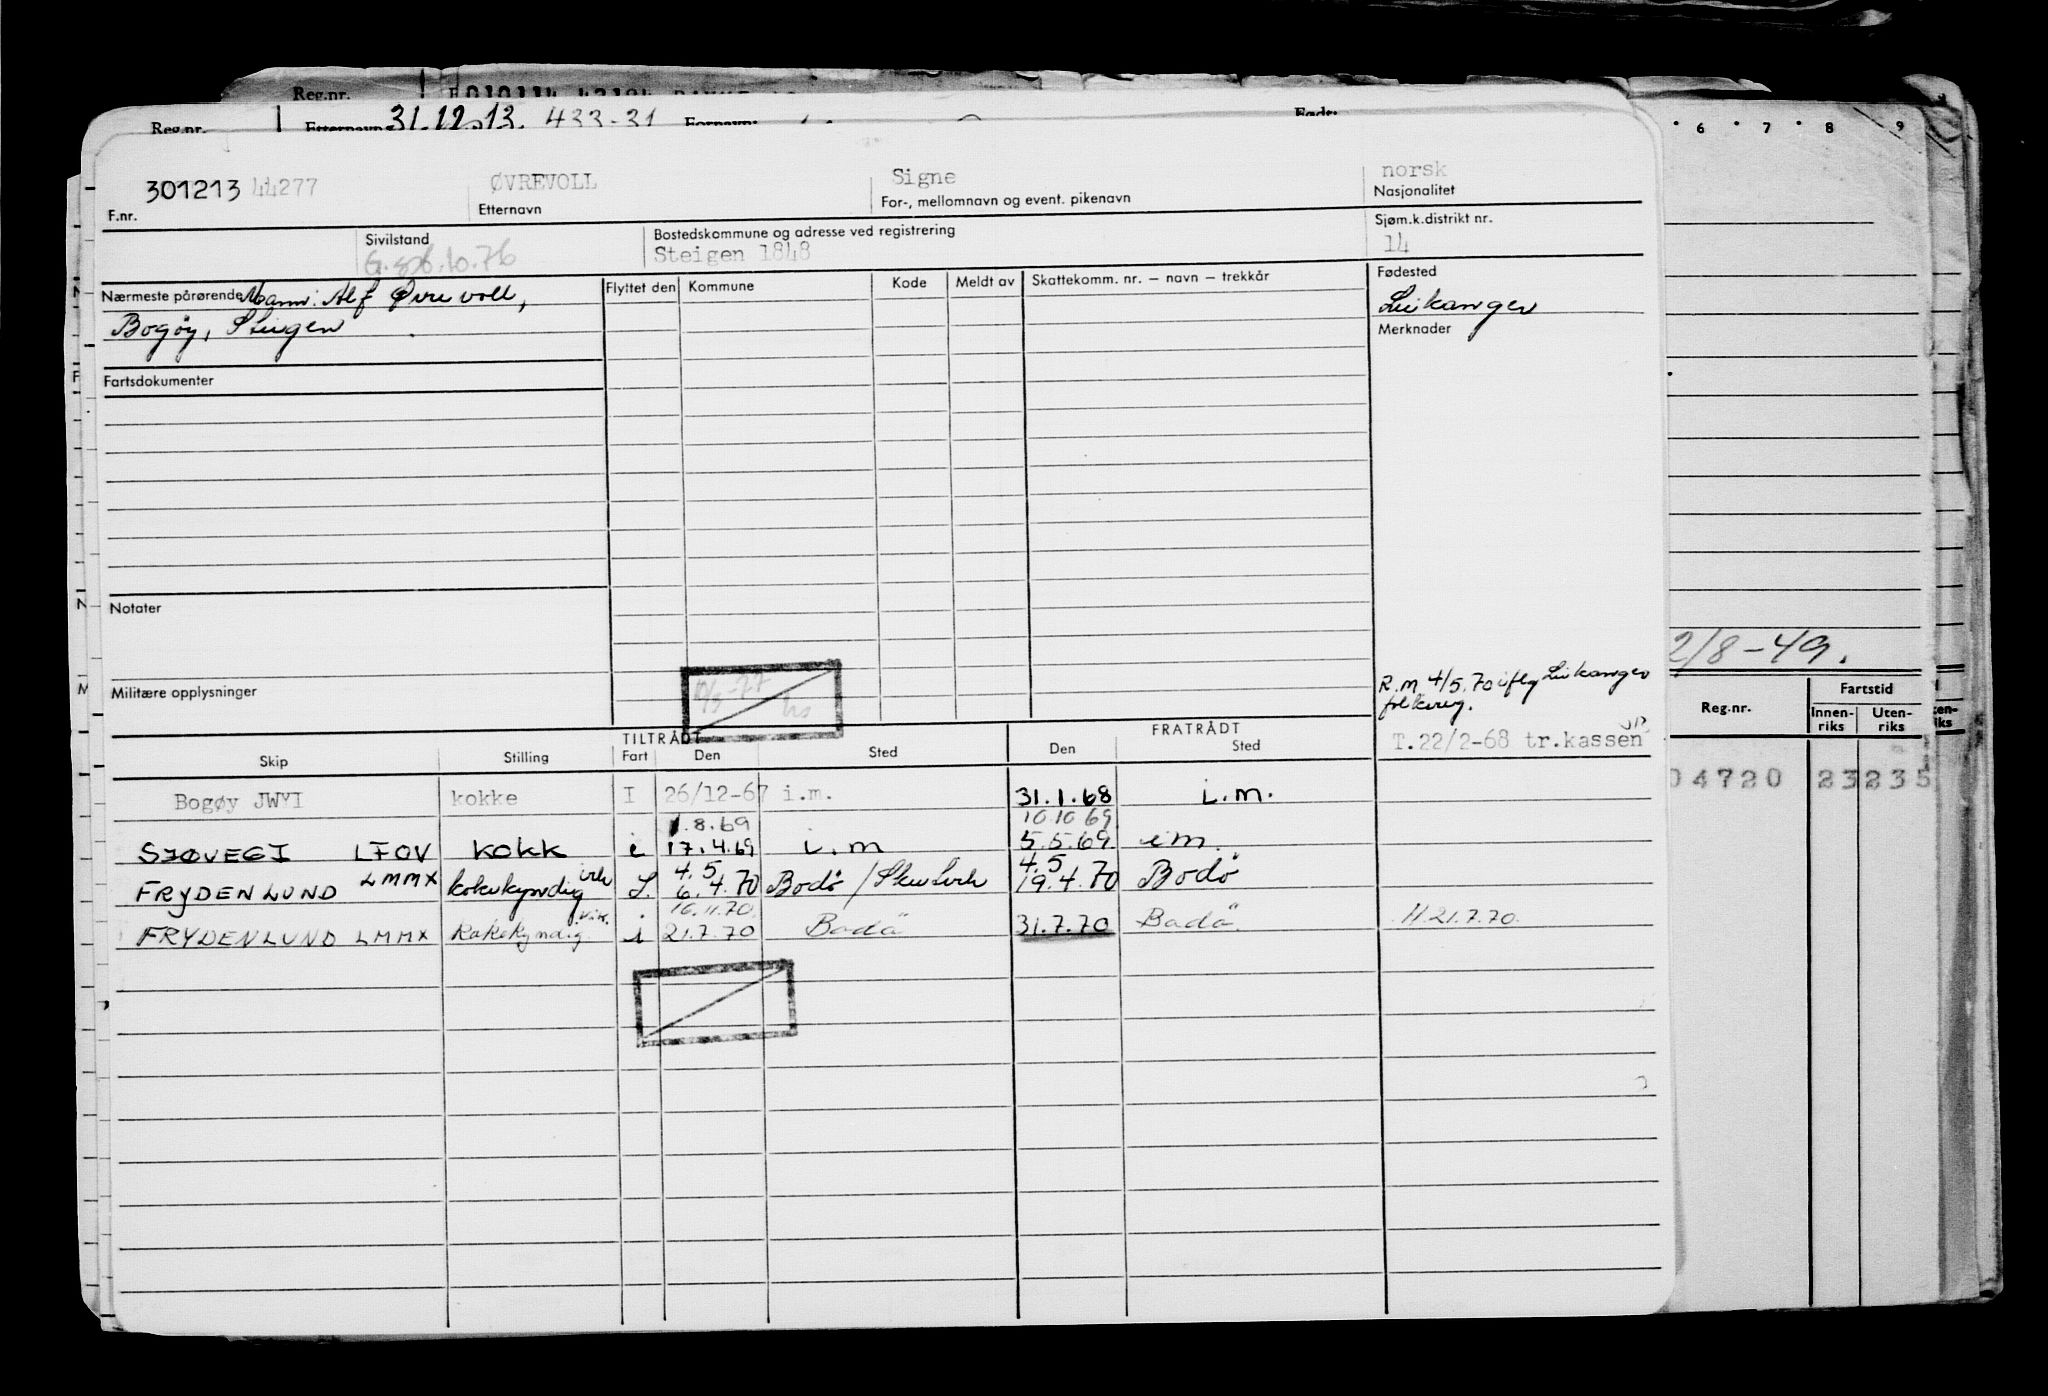 Reg.nr.
Reg.nr. Etternavn 31.12.13. 433-31 Fornavn: Født:
6 7 8 9
301213 44277 ØVREVOLL Signe norsk
F.nr. Etternavn For-, mellomnavn og event. pikenavn Nasjonalitet
Sivilstand Bostedskommune og adresse ved registrering Sjøm.k.distrikt nr.
Steigen 1848 14
Nærmeste pårørende Mann: Alf Øvrevoll, Flyttet den Kommune Kode Meldt av Skattekomm. nr. – navn – trekkår Fødested
Bogøy, Steigen Leikanger
Merknader
Fartsdokumenter
Notater
2/8-49.
Militære opplysninger
R.M 4/5.70 iflg Leikanger
folkereg.
T.22/2-68 tr.kassen
Reg.nr. Fartstid
Innen-riks Uten-riks
TILTRÅDT FRATRÅDT
Skip Stilling Fart Den Sted Den Sted
Bogøy JWYI kokke I 26/12-67 i.m. 31.1.68 i.m.
04720 23 235
1.8.69 10.10 69
SJØVEGI LFOV KOKK i 17.4.69 i.m 5.5.69 im.
4.5 4.5
FRYDENLUND LMMX kokekyndig L. 6.4.70 Bodö 19.4.70 Bodö
16.11.70.
FRYDENLUND LMMX kokekyndig vik. i 21.7.70 Bodö 31.7.70 Bodö H.21.7.70.